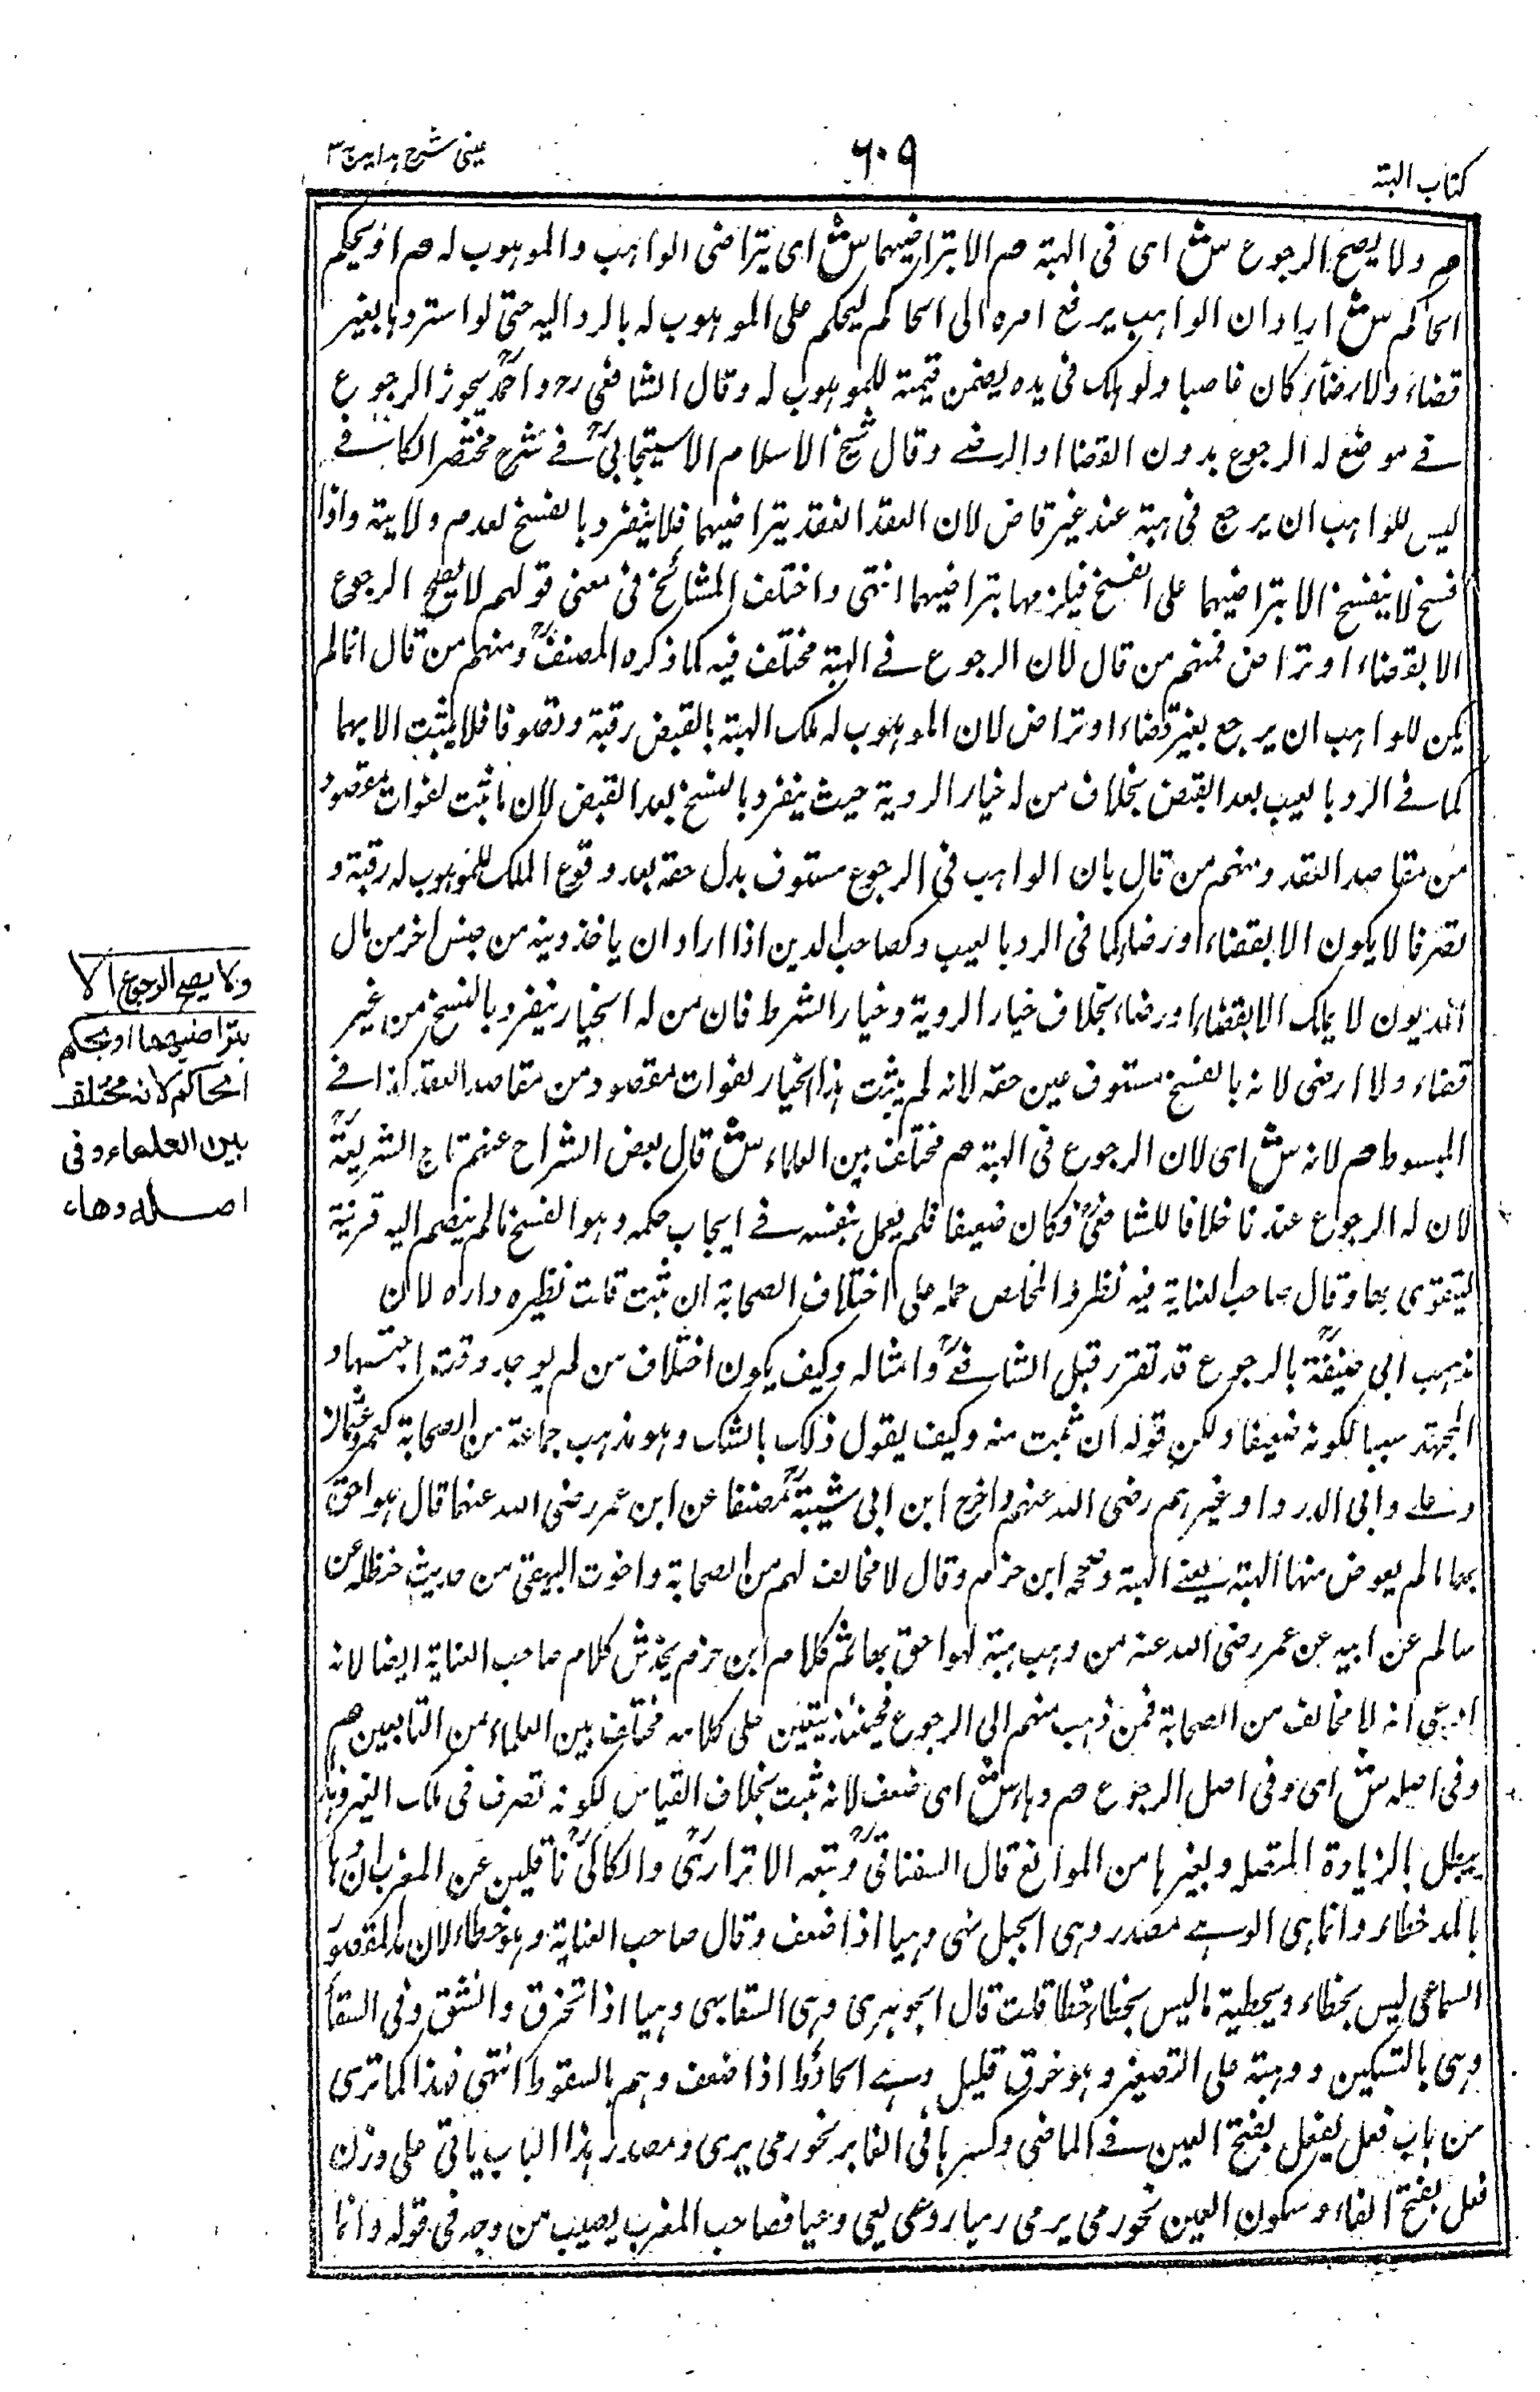 كتاب الهبة
٦٠٩
عينى شرح هدايه ج٣
م ولا يصح الرجوع ش اى فى الهبة م الا بتراضيهما ش اى بتراضى الواهب والموهوب له م او بحكم
الحاكم ش اراد ان الواهب يرفع امره الى الحاكم ليحكم على الموهوب له بالرد اليه حتى لو استردها بغير
قضاء ولا رضاء كان غاصبا ولو هلك فى يده يضمن قيمته للموهوب له وقال الشافعى رح واحمدؒ يجوز الرجوع
فے موضع له الرجوع بدون القضا او الرضے وقال شيخ الاسلام الاسبيجابىؒ فے شرح مختصر الكافے
ليس للواهب ان يرجع فى هبته عند غير قاض لان العقد انعقد بتراضيهما فلا ينفرد بالفسخ لعدم ولايته واذا
فسخ لا ينفسخ الا بتراضيهما على الفسخ فيلزمها بتراضيهما انتهى واختلف المشائخ فى معنى قولهم لا يصح الرجوع
الا بقضاء او تراض فمنهم من قال لان الرجوع فے الهبة مختلف فيه كما ذكره المصنفؒ ومنهم من قال انما لم
يكن للواهب ان يرجع بغير قضاء او تراض لان الموهوب له ملك الهبة بالقبض رقبة وتصرفا فلا يثبت الا بهما
كما فے الرد بالعيب بعد القبض بخلاف من له خيار الروية حيث ينفرد بالفسخ بعد القبض لان ما ثبت لفوات مقصود
من مقاصد العقد ومنهم من قال بان الواهب فى الرجوع مستوف بدل حقه بعد وقوع الملك للموهوب له رقبة و
تصرفا لا يكون الا بقضاء او رضاء كما فى الرد بالعيب وكصاحب الدين اذا اراد ان ياخذ دينه من جنس اخر من مال
المديون لا يملك الا بقضاء او رضاء بخلاف خيار الروية وخيار الشرط فان من له الخيار ينفرد بالفسخ من غير
قضاء ولا ارضى لانه بالفسخ مستوف عين حقه لانه لم يثبت هذا الخيار لفوات مقصود من مقاصد العقد كذا فے
المبسوط م لانه ش اى لان الرجوع فى الهبة م مختلف بين العلماء ش قال بعض الشراح عنهم تاج الشريعةؒ
لان له الرجوع عندنا خلافا للشافعىؒ وكان ضعيفا فلم يعمل بنفسه فے ايجاب حكمه وهو الفسخ ما لم ينضم اليه قرينة
ليتقوى بها وقال صاحب العناية فيه نظر والمخلص حمله على اختلاف الصحابة ان ثبت قلت نظيره داره لان
مذهب ابى حنيفةؒ بالرجوع قد تقرر قبل الشافعےؒ وامثاله وكيف يكون اختلاف من لم يوجد وقت اجتهاد
المجتهد سببا لكونه ضعيفا ولكن قوله ان ثبت منه وكيف يقول ذلك بالشك وهو مذهب جماعة من الصحابة كعمر وعثمان
وعلے وابى الدرداو غيرهم رضى الله عنهم واخرج ابن ابى شيبةؒ مصنفا عن ابن عمر رضى الله عنهما قال هو احق
بها ما لم يعوض منها الهبة يعنے الهبة وصححه ابن حزم وقال لا مخالف لهم من الصحابة واخوت البيهقى من حديث حنظلة عن
سالم عن ابيه عن عمر رضى الله عنه من وهب هبة لهو احق بها ثم كلام ابن حزم يخدش كلام صاحب العناية ايضا لانه
ادعى انه لا مخالف من الصحابة فمن ذهب منهم الى الرجوع فحينئذ يتعين على كلامه مختلف بين العلماء من التابعين م
وفى اصله ش اى وفى اصل الرجوع م وهاء ش اى ضعف لانه ثبت بخلاف القياس لكونه تصرف فى ملك الغير وهذا
يبطل بالزيادة المتصلة وبغيرها من الموانع قال السغناقىؒ وتبعه الاترازىؒ والكاكىؒ ناقلين عن المغرب ان ها
بالمد خطاء وانما هى الوهے مصدر وهى الحبل يهى وهيا اذا ضعف وقال صاحب العناية وهو خطاء لان مد المقصور
السماعى ليس بخطاء وتخطية ما ليس بخطاء خطا قلت قال الجوهرى وهى السقا يهى وهيا اذا تخرق وانشق وفى السقا
وهى بالتسكين ووهية على التصغير وهو خرق قليل وهے الحائط اذا ضعف وهم بالسقوط انتهى فهذا كما ترى
من باب فعل يفعل بفتح العين فے الماضى وكسرها فى الغابر نحو رمى يرمى ومصدر هذا الباب ياتى على وزن
فعل بفتح الفاء وسكون العين نحو رمى يرمى رميا روعى يعى وعيا فصاحب المغرب يصيب من وجه فى قوله وانما
ولا يصح الرجوع الا
بتراضيهما او بحكم
الحاكم لانه مختلف
بين العلماء وفى
اصله وهاء